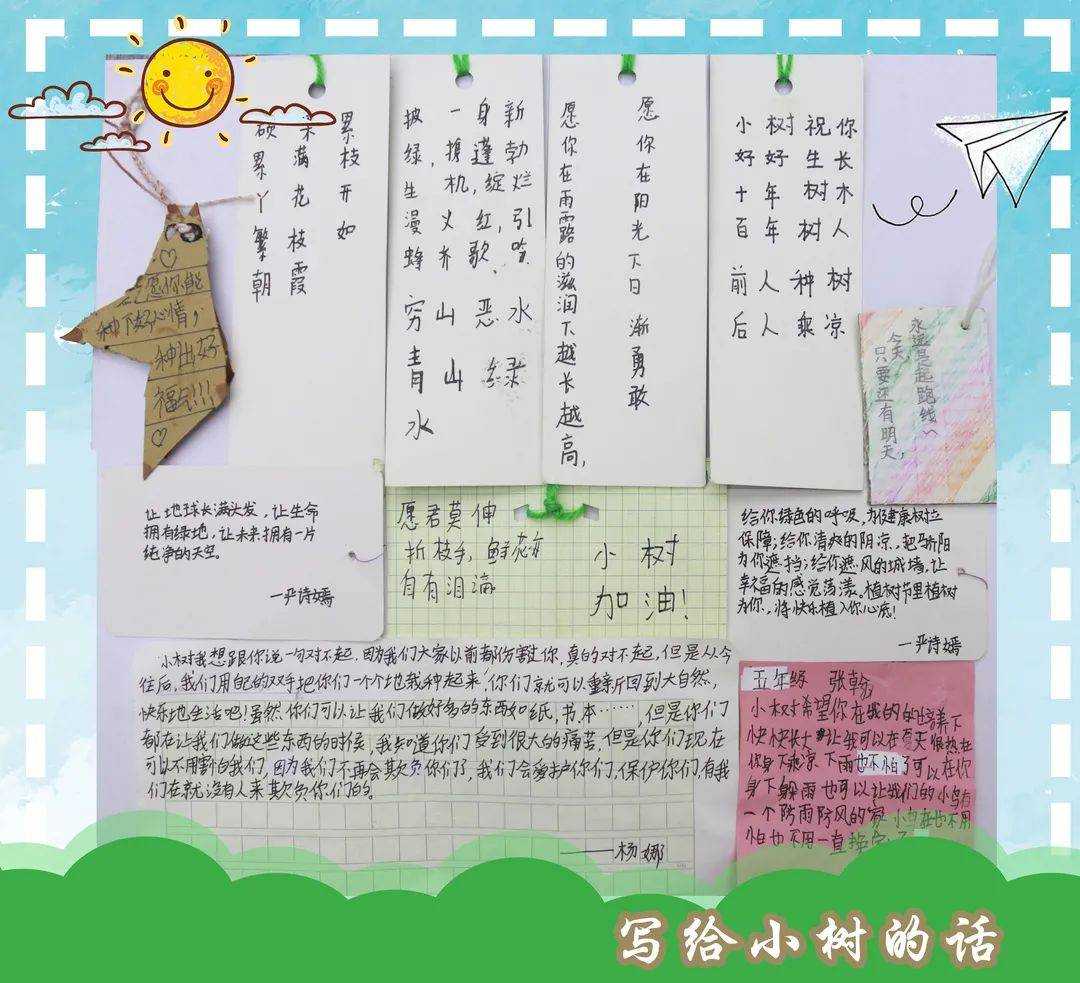 愿你能
种下好心情,
种出好
福气!!!
硕果累
累满枝
丫花开
繁枝如
朝霞
披一身新
绿,携蓬勃
生机,绽烂
漫火红,引
蜂齐歌、吟
穷山恶水
青山绿
水
愿你在雨露的滋润下越长越高,
愿你在阳光下日渐勇敢
小树祝你
好好生长
十年树木
百年树人
前人种树
后人乘凉
只要还有明天,
今天,
永远是起跑线~
让地球长满头发,让生命
拥有绿地,让未来拥有一片
纯净的天空。
—严诗嫣
愿君莫伸
折枝手,鲜花亦
自有泪滴
小树
加油!
给你绿色的呼吸,为健康树立
保障;给你清爽的阴凉,把骄阳
为你遮挡;给你遮风的城墙,让
幸福的感觉荡漾。植树节里植树
为你,将快乐植入你心底!
—严诗嫣
小树我想跟你说一句对不起,因为我们大家以前都伤害过你,真的对不起,但是从今
往后,我们用自己的双手把你们一个个地栽种起来,你们就可以重新回到大自然,
快乐地生活吧!虽然你们可以让我们做好多的东西如纸,书,本……,但是你们
都在让我们做这些东西的时候,我知道你们受到很大的痛苦,但是你们现在
可以不用害怕我们,因为我们不再会欺负你们了,我们会爱护你们,保护你们,有我
们在就没有人来欺负你们的。
——杨娜
五年级 张乾
小树希望你在我的的培养下
快快长大让我可以在夏天很热在
你身下乘凉下雨也不怕了可以在你
身下躲雨也可以让我们的小鸟有
一个防雨防风的家小鸟在也不用
怕也不用一直
写给小树的话